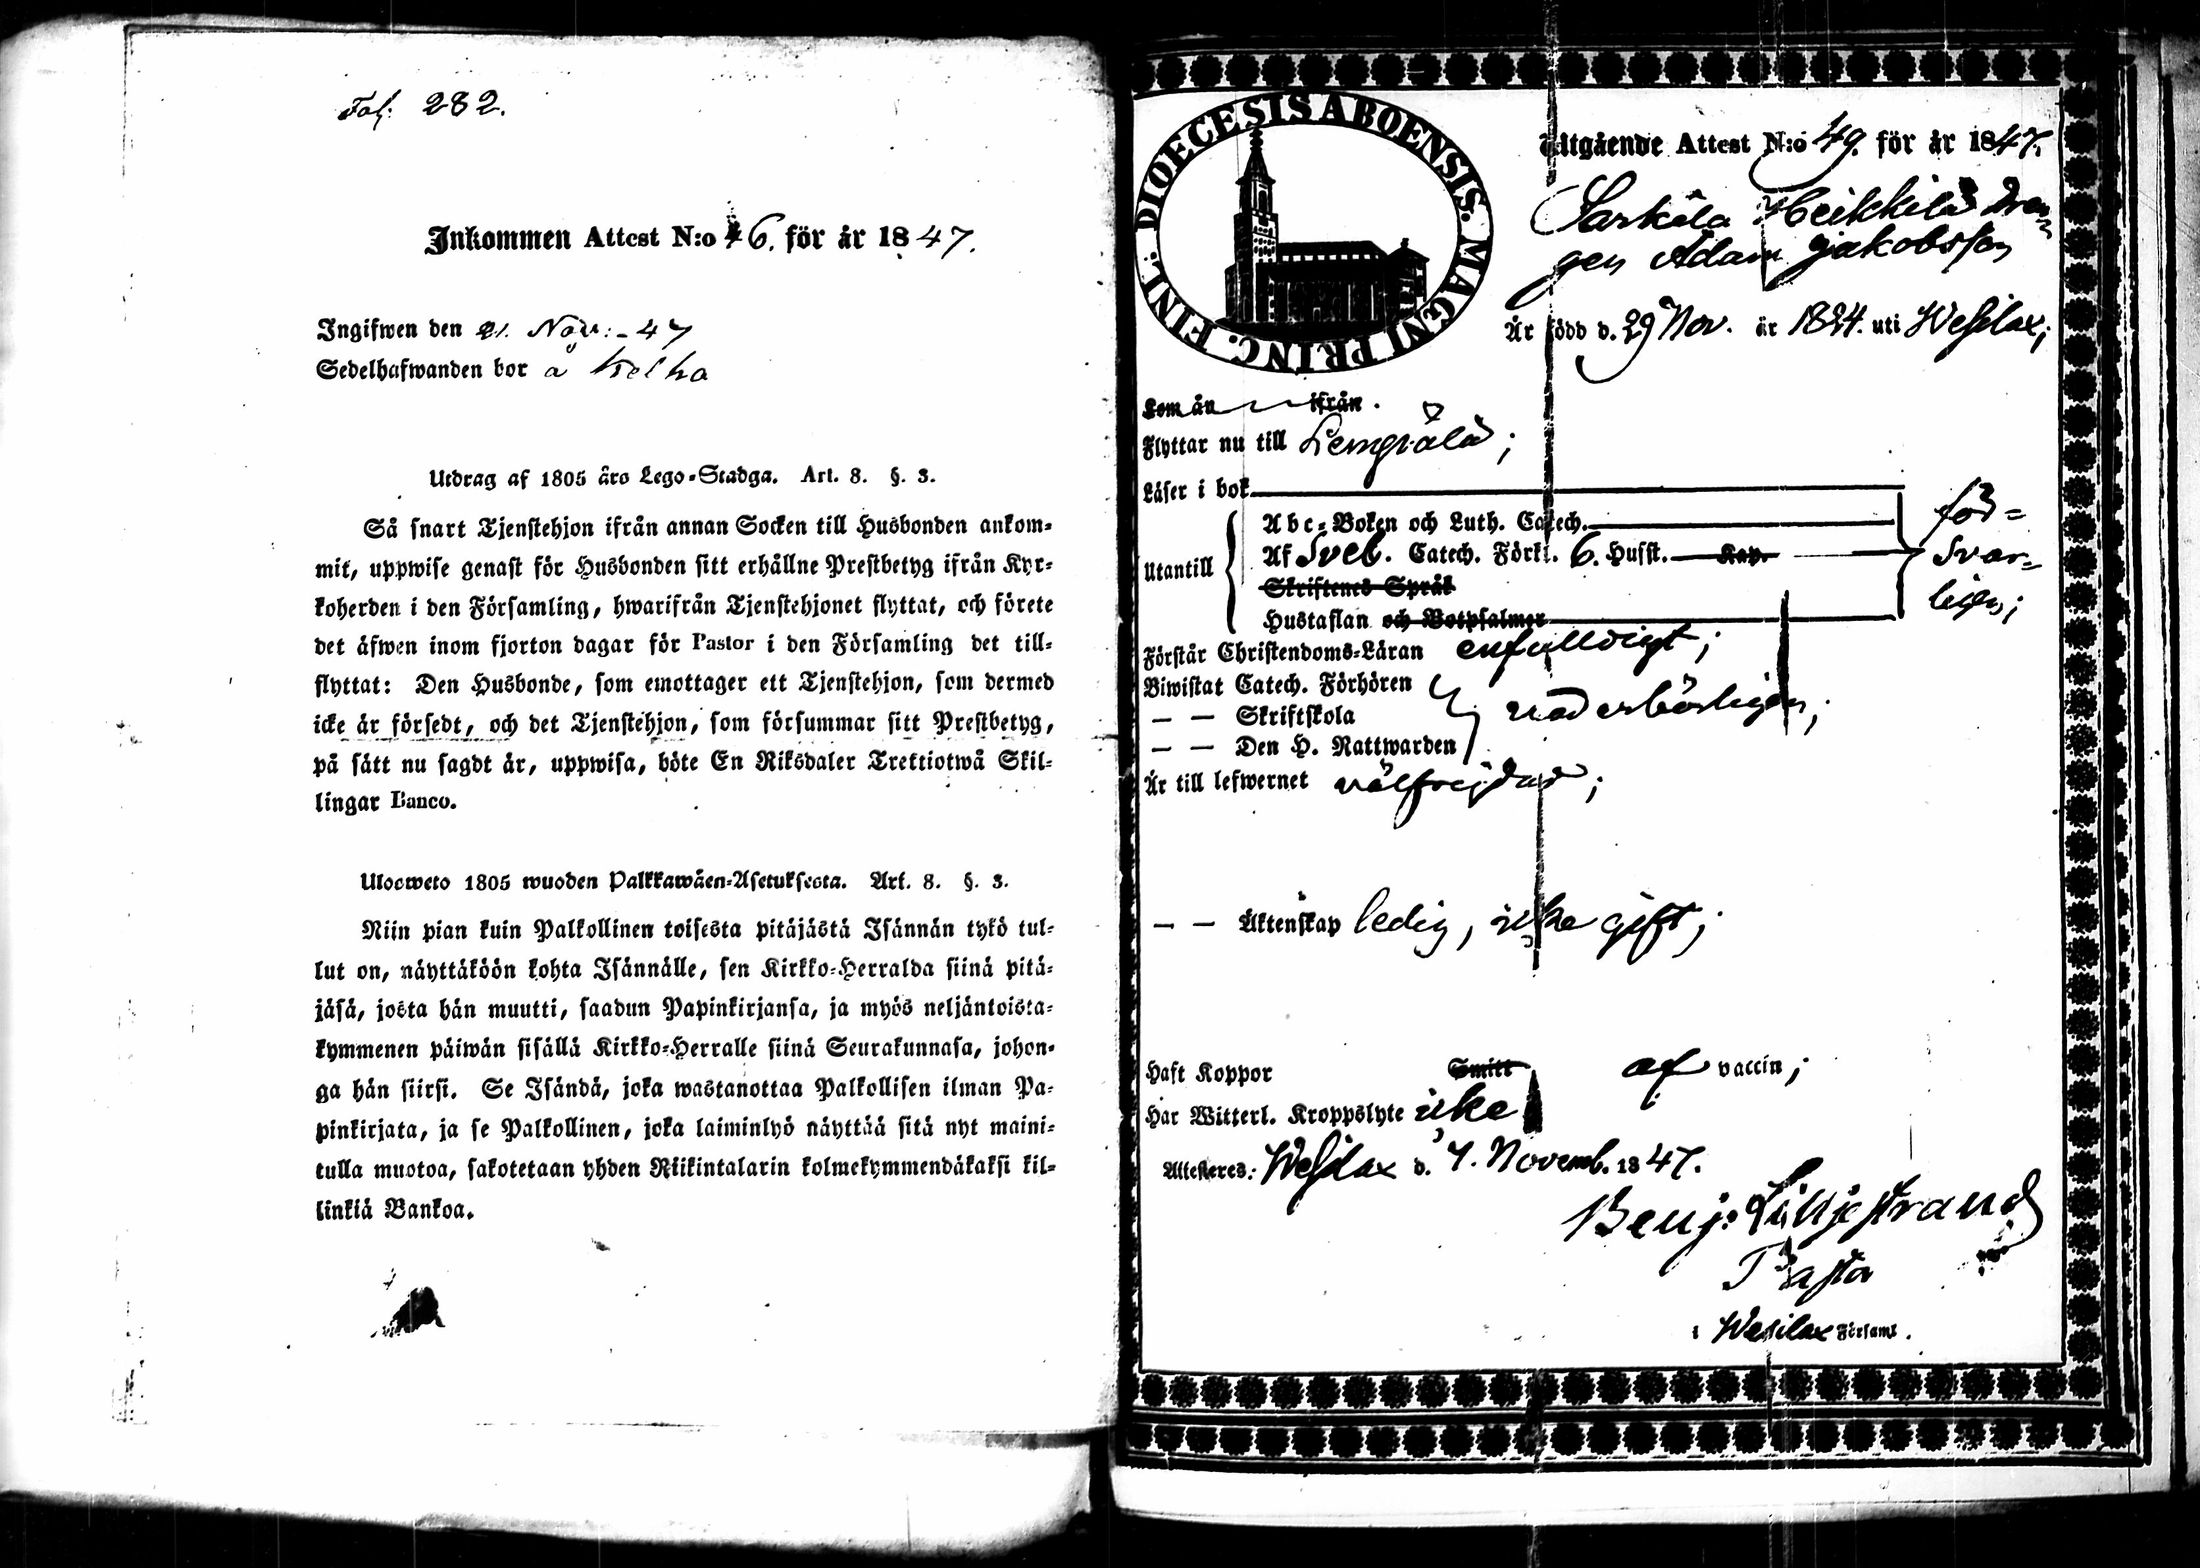 Fol. 282.
Inkommen Attest N:o 46. för år 1847.
Ingifwen den 21. Nov: -47
Sedelhafwanden bor å Kelho
Utdrag af 1805 års Lego-Stadga. Art. 8. §. 3.
Så snart Tjenstehjon ifrån annan Socken till Husbonden ankom-
mit, uppwise genast för Husbonden sitt erhållne Prestbetyg ifrån Kyr-
koherden i den Församling, hwarifrån Tjenstehjonet flyttat, och förete
det äfwen inom fjorton dagar för Pastor i den Församling det till-
flyttat: Den Husbonde, som emottager ett Tjenstehjon, som dermed
icke är försedt, och det Tjenstehjon, som försummar sitt Prestbetyg,
på sätt nu sagdt är, uppwisa, böte En Riksdaler Trettiotwå Skil-
lingar Banco.
Uloosweto 1805 wuoden Palkkawäen-Asetuksesta. Art. 8. §. 3.
Niin pian kuin Palkollinen toisesta pitäjästä Isännän tykö tul-
lut on, näyttäköön kohta Isännälle, sen Kirkko-Herralda siinä pitä-
jäsä, josta hän muutti, saadun Papinkirjansa, ja myös neljäntoista-
kymmenen päiwän sisällä Kirkko-Herralle siinä Seurakunnasa, johon-
ga hän siirsi. Se Isändä, joka wastanottaa Palkollisen ilman Pa-
pinkirjata, ja se Palkollinen, joka laiminlyö näyttää sitä nyt maini-
tulla muotoa, sakotetaan yhden Riikintalarin kolmekymmendäkaksi kil-
linkiä Bankoa.
DIOECESIS ABOENSIS. MAGNI PRINC. FINL.
Utgående Attest N:o 49. för år 1847.
Sarkola Heikkilä Dren-
gen Adam Jakobsson
Är född d. 29 Nov. år 1824. uti Wesilax;
Kom än ifrån .
Flyttar nu till Lempiälä;
Läser i bok
Utantill
Abc-Boken och Luth. Catech.
Af Sveb. Catech. Förkl. 6. Husst. Kap.
Skriftenes Språk
Hustaflan och Botpsalmer
för-
svar-
ligen;
Förstår Christendoms-Läran enfalldigt;
Biwistat Catech. Förhören
— — Skriftskola
— — Den H. Nattwarden
vederbörligen;
Är till lefwernet välfrejdad;
— — Äktenskap ledig, icke gift;
Haft Koppor Smitt af vaccin;
Har Witterl. Kroppslyte icke
Attesteres: Wesilax d. 7. Novemb. 1847.
Benj: Lilljestrand
Pastor
i Wesilax Församl.